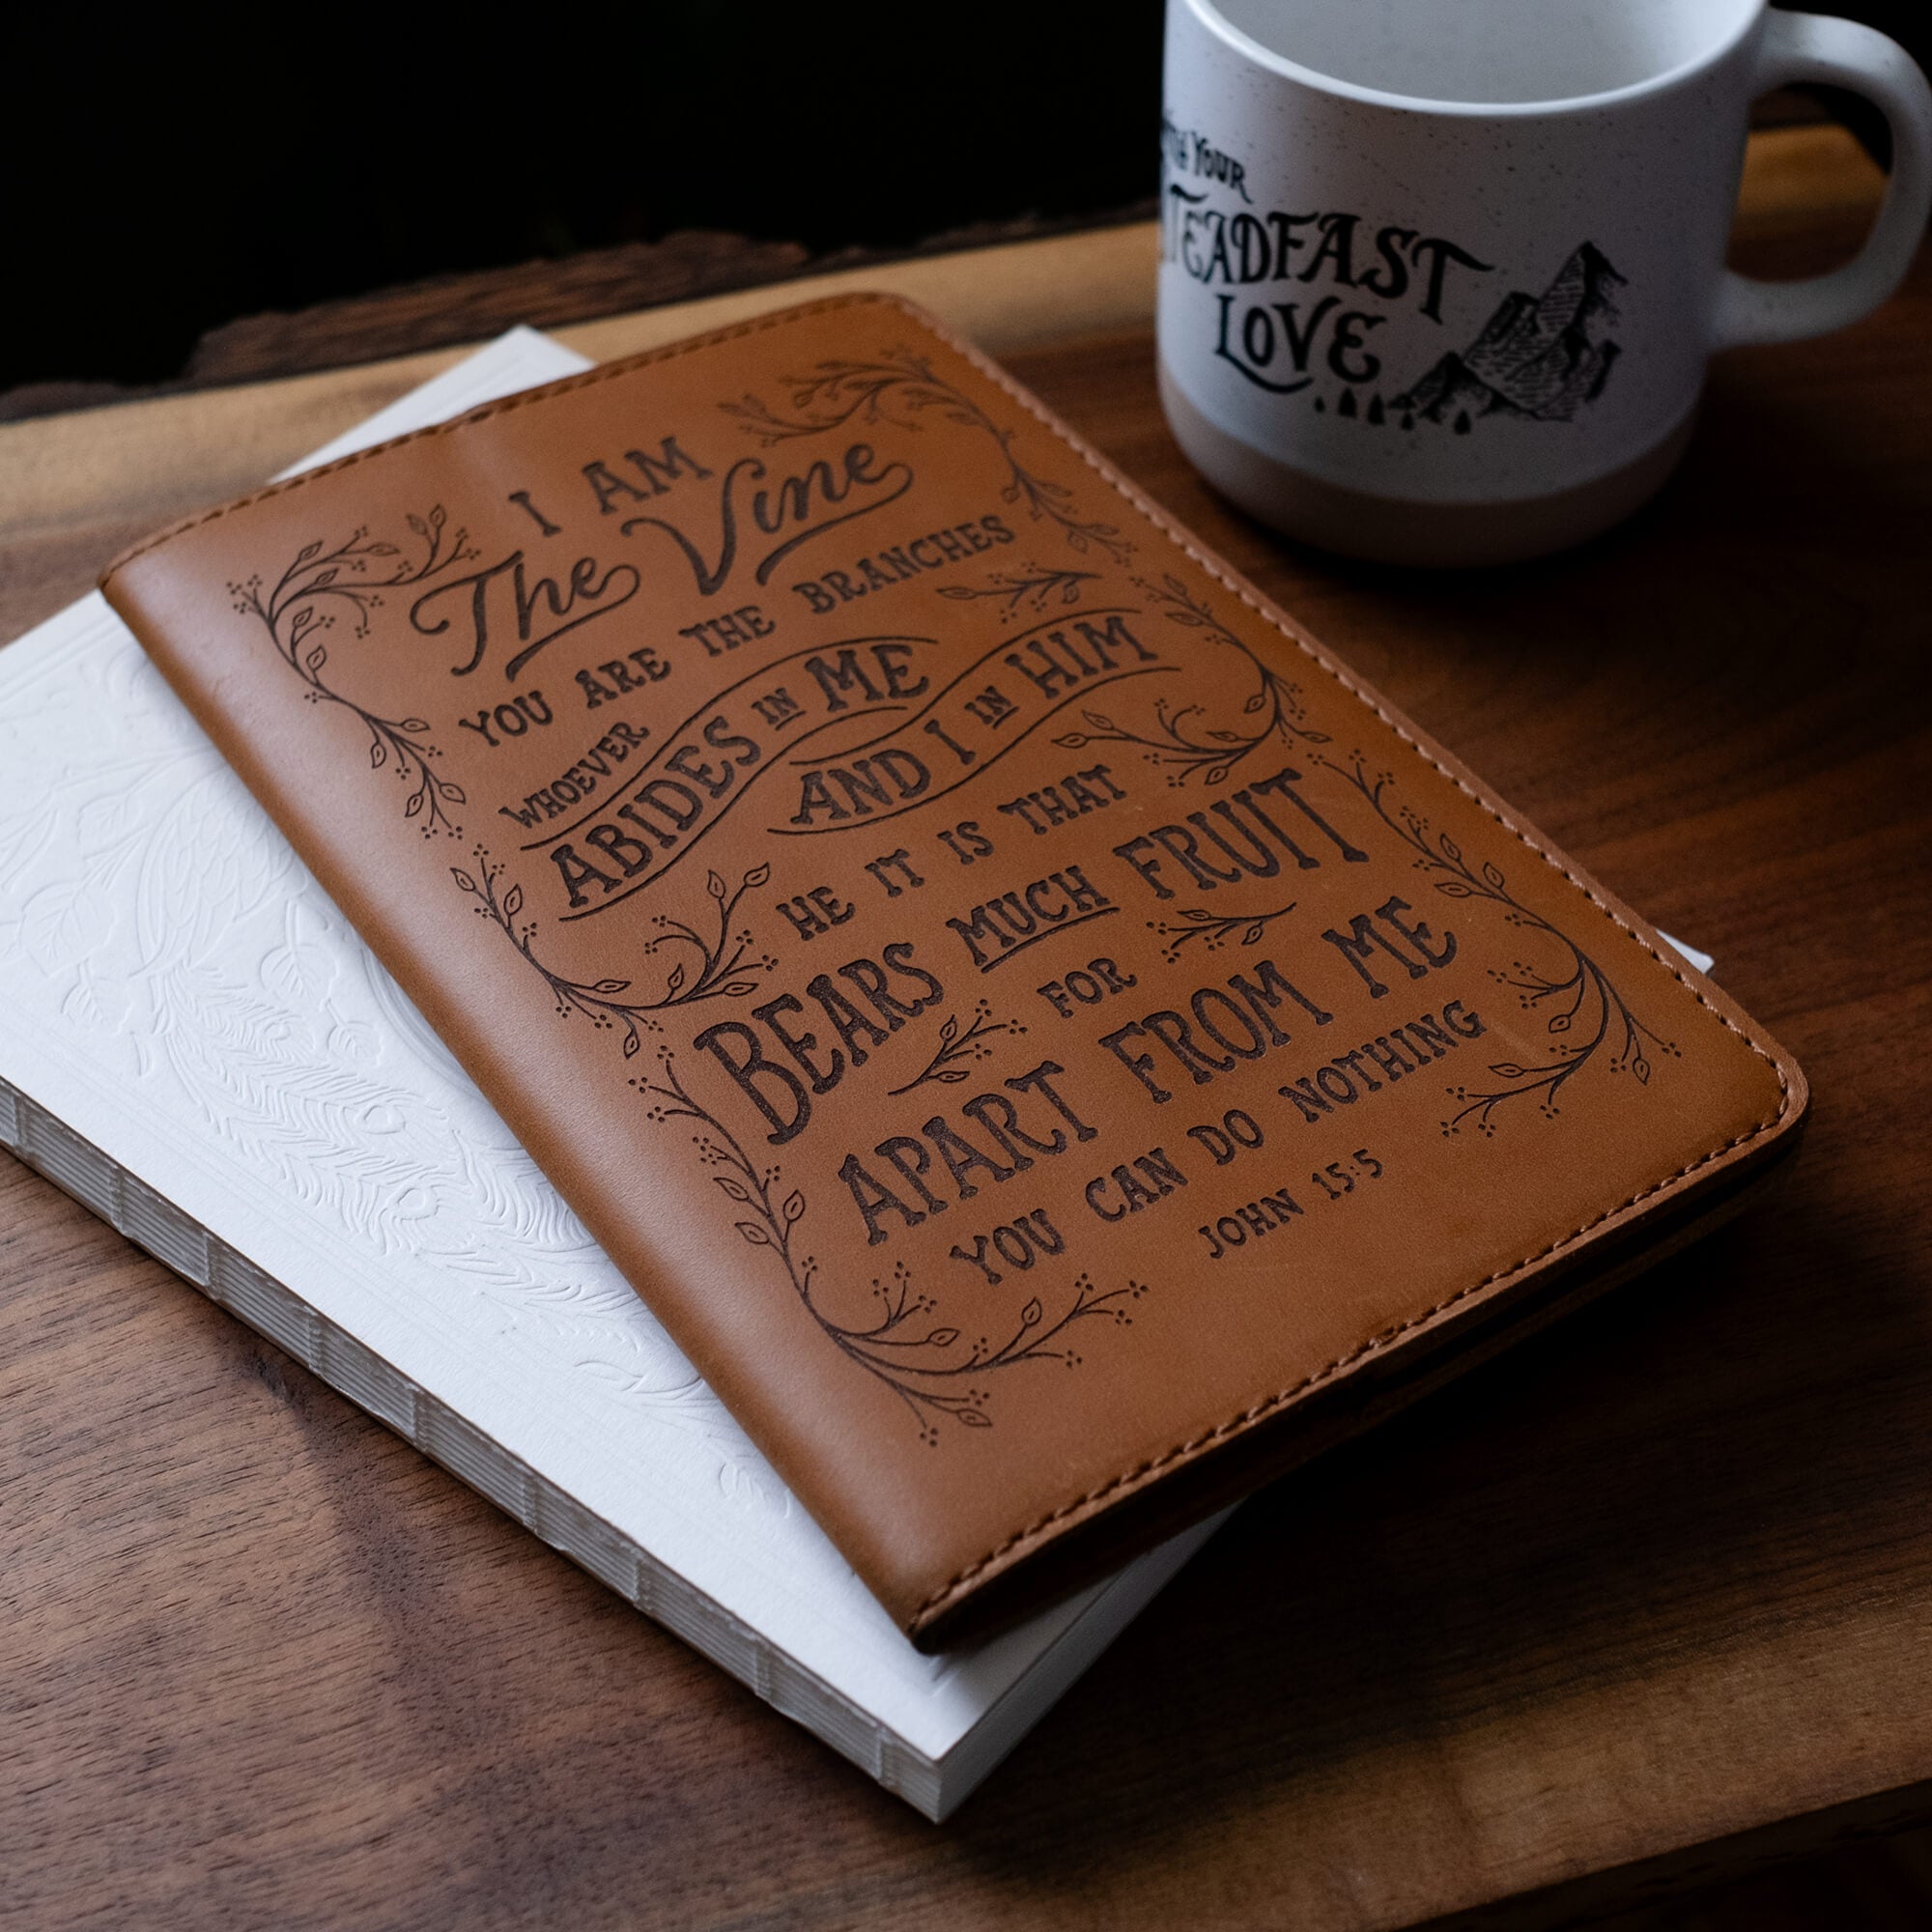 I AM
The Vine
YOU ARE THE BRANCHES
WHOEVER
ABIDES IN ME
AND I IN HIM
HE IT IS THAT
BEARS MUCH FRUIT
FOR
APART FROM ME
YOU CAN DO NOTHING
JOHN 15:5
YOUR
STEADFAST
LOVE